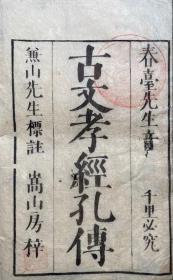 春臺先生音
千里必究
古文孝經孔傳
無山先生標註
嵩山房梓